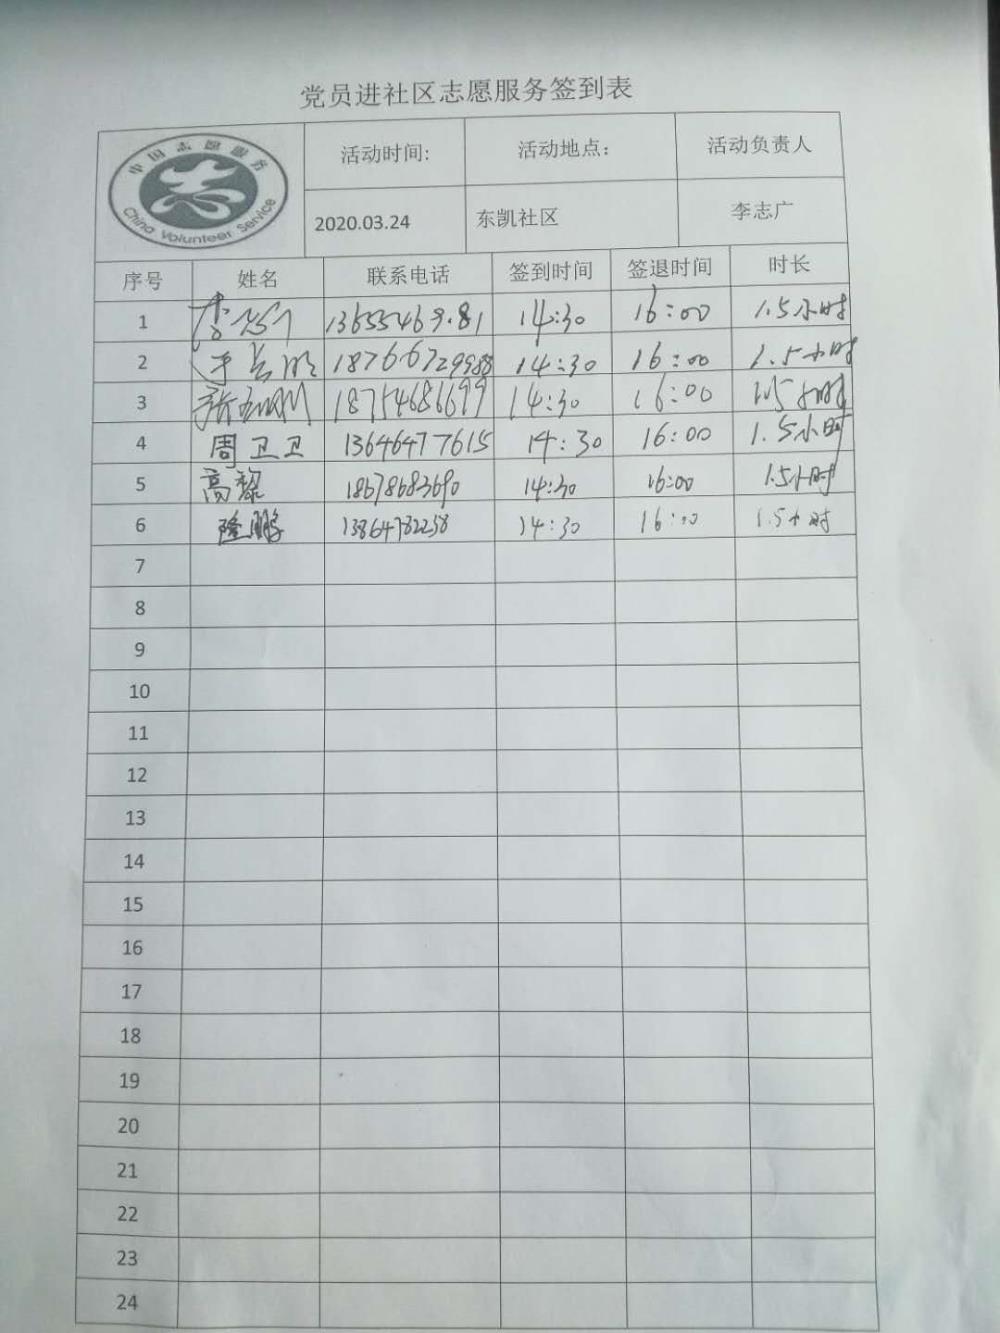 党员进社区志愿服务签到表
中国志愿服务
China Volunteer Service
活动时间: 活动地点: 活动负责人
2020.03.24 东凯社区 李志广
序号 姓名 联系电话 签到时间 签退时间 时长
1 14:30 16:00 1.5小时
2 18766729988 14:30 16:00 1.5小时
3 18754686699 14:30 16:00 1.5小时
4 周卫卫 13646477615 14:30 16:00 1.5小时
5 高黎 18678683690 14:30 16:00 1.5小时
6 隆鹏 13864782238 14:30 16:00 1.5小时
7
8
9
10
11
12
13
14
15
16
17
18
19
20
21
22
23
24